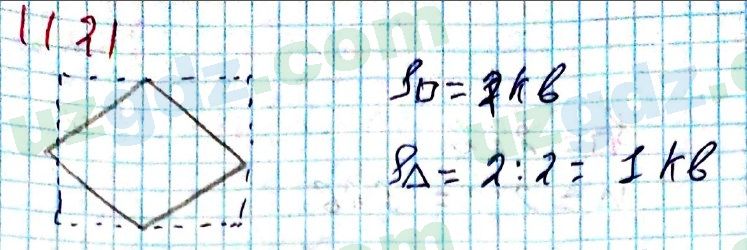 1121
S□ = 2 кв
S△ = 2 : 2 = 1 кв
uzgdz.com
uzgdz.com